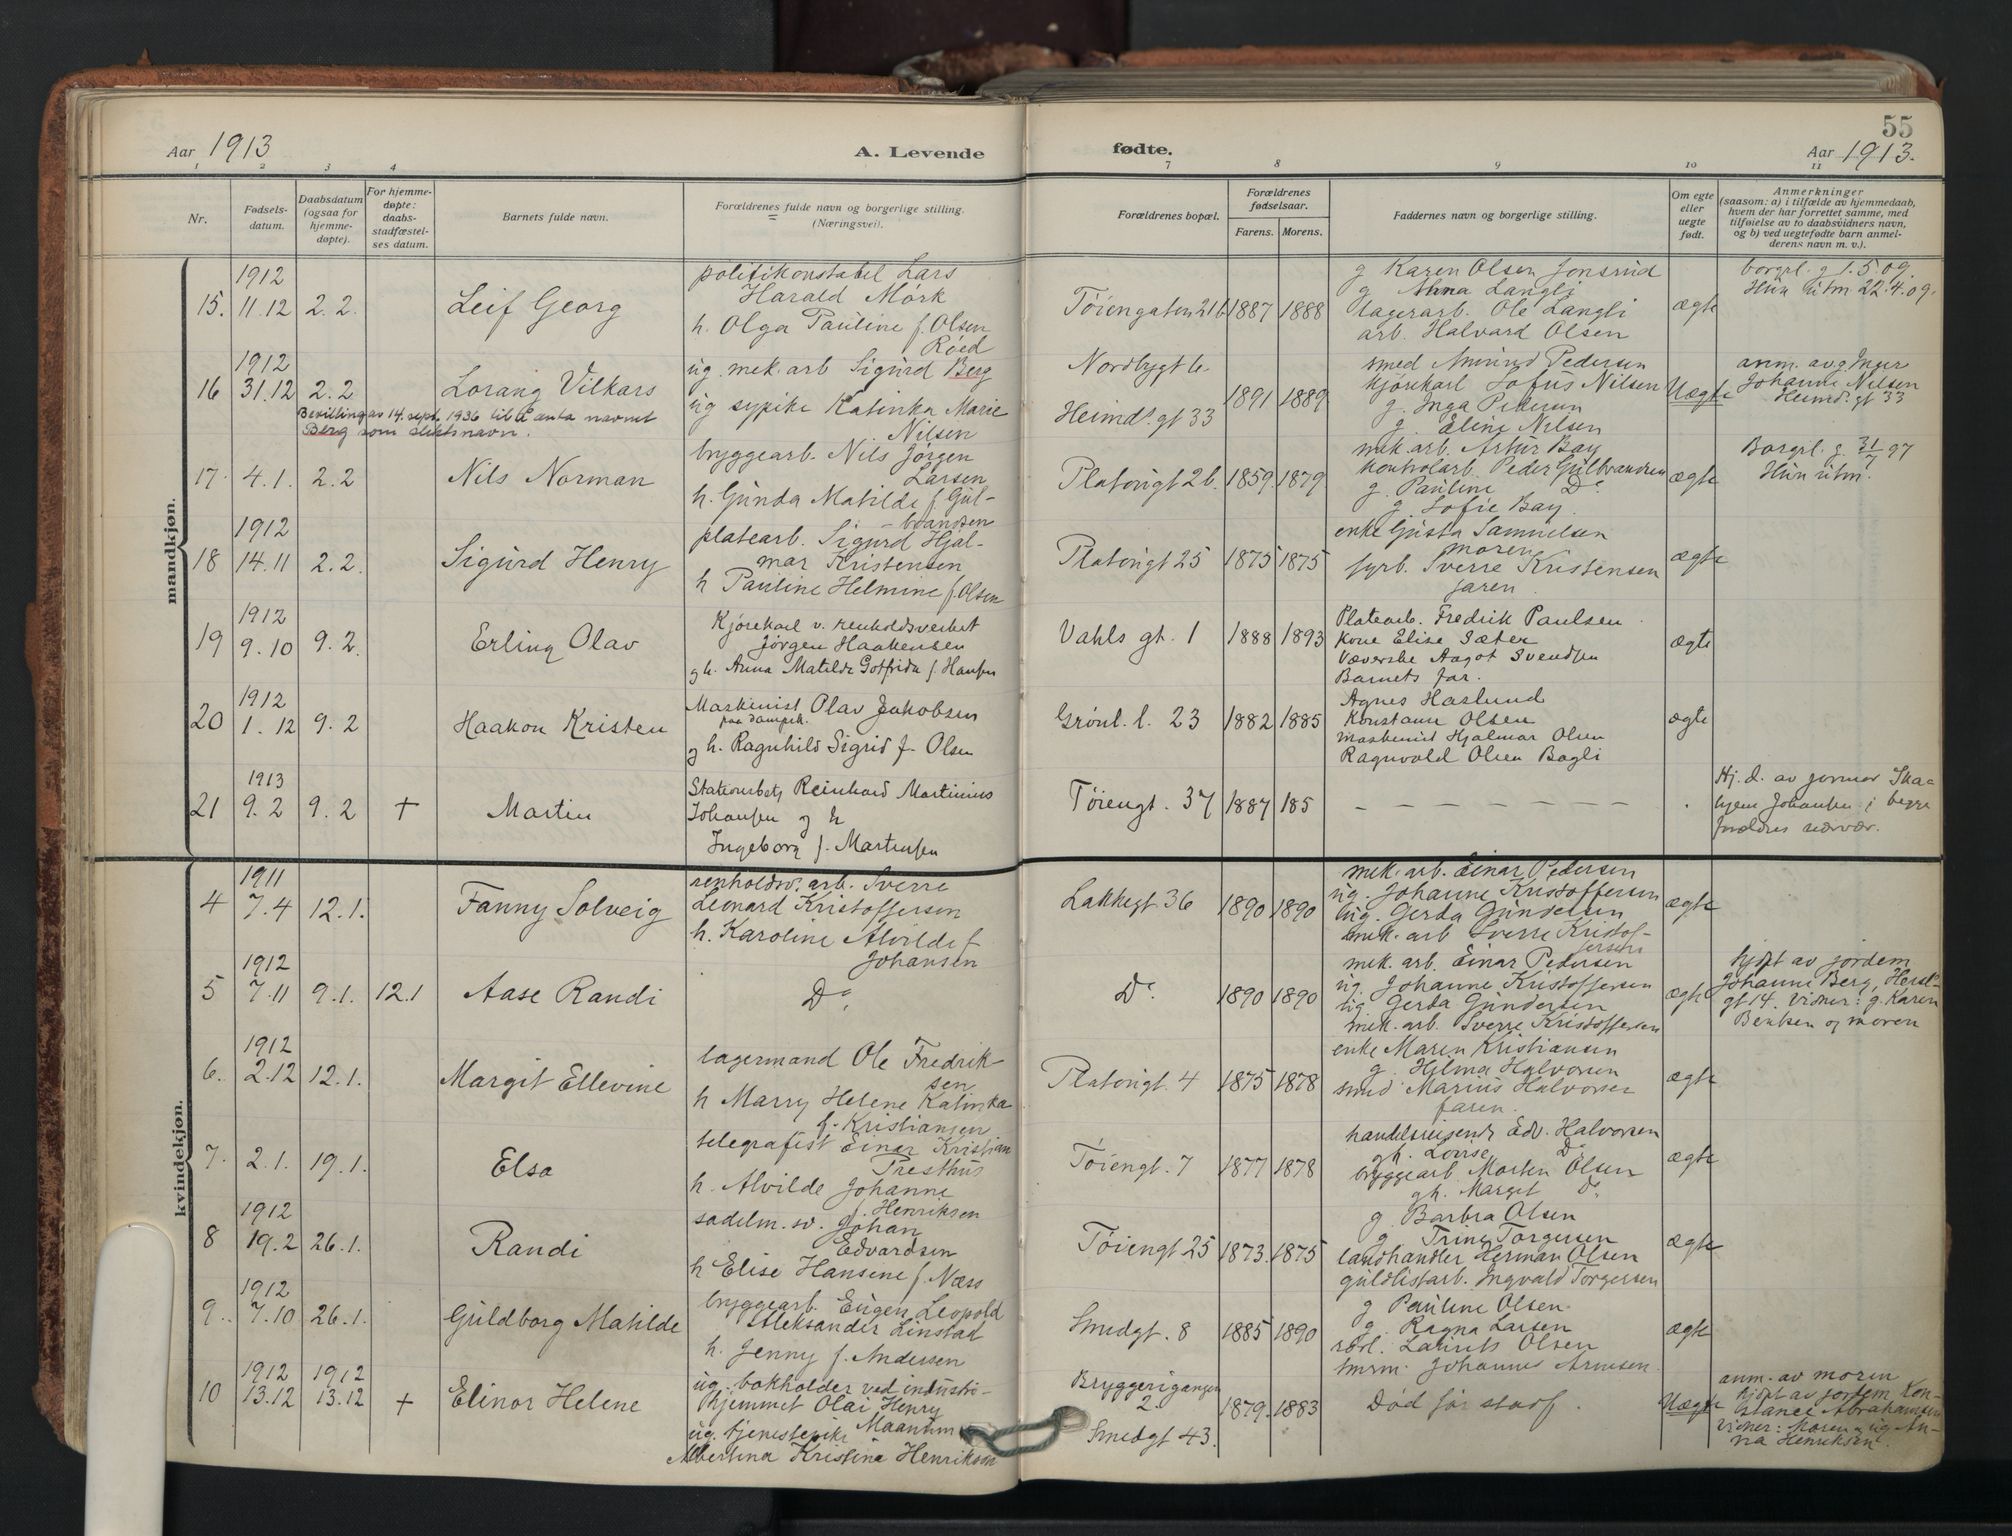 55
Aar 1913
A. Levende
fødte.
Aar 1913.
1 2 3 4 7 8 9 10 11
Nr.
Fødsels-
datum.
Daabsdatum
(ogsaa for
hjemme-
døpte).
For hjemme-
døpte:
daabs-
stadfæstel-
ses datum.
Barnets fulde navn.
Forældrenes fulde navn og borgerlige stilling.
(Næringsvei).
Forældrenes bopæl.
Forældrenes
fødselsaar.
Farens. Morens.
Faddernes navn og borgerlige stilling.
Om egte
eller
uegte
født.
Anmerkninger
(saasom: a) i tilfælde av hjemmedaab,
hvem der har forrettet samme, med
tilføielse av to daabsvidners navn,
og b) ved uegtefødte barn anmel-
derens navn m. v.).
mandkjøn.
15. 1912
11.12 2.2. Leif Georg
politikonstabel Lars
Harald Mørk
h. Olga Pauline f. Olsen
Røed
Tøiengaten 21b 1887 1888
g Karen Olsen Jonsrud
g Anna Langli
lagerarb. Ole Langli
arb. Halvard Olsen
ægte
borgel. g 1.5.09.
Hun utm 22.4.09.
16 1912
31.12 2.2 Lorang Vilkars
Bevilling av 14. sept. 1936 til å anta navnet
Berg som slektsnavn.
ug. mek. arb Sigurd Berg
ug sypike Katinka Marie
Nilsen
Nordbygt 6.
Heimd. gt 33 1891 1889
smed Amund Pedersen
kjørekarl Sofus Nilsen
g. Inga Pedersen
g. Eline Nilsen
Uægte
anm. av g. Inger
Johanne Nilsen
Heimd. gt 33
17. 4.1. 2.2 Nils Norman
bryggearb. Nils Jørgen
Larsen
h. Gunda Matilde f. Gul-
brandsen
Platougt 2b. 1859. 1879
mek. arb. Artur Bay
kontrolarb. Peder Gulbrandsen
g. Pauline Do
g. Sofie Bay.
ægte
Borgel. g. 31/7 97
Hun utm.
18 1912
14.11 2.2. Sigurd Henry
platearb. Sigurd Hjal-
mar Kristensen
h Pauline Helmine f. Olsen
Platougt 25 1875 1875
enke Gusta Samuelsen
moren
fyrb. Sverre Kristensen
faren
ægte
19 1912
9.10 9.2. Erling Olav
Kjørekarl v. renholdsverket
Jørgen Haakensen
g h. Anna Matilde Gotfrida f. Hansen
Vahls gt. 1 1888 1893
Platearb. Fredrik Paulsen
Kone Elise Sæter
Væverske Aagot Svendsen
Barnets far.
ægte
20 1912
1.12 9.2 Haakon Kristen
Maskinist Olav Jakobsen
paa dampsk.
g h. Ragnhild Sigrid f. Olsen
Grønl. l. 23 1882 1885
Agnes Haslund
Konstanse Olsen
Maskinist Hjalmar Olsen
Ragnvald Olsen Bagli
ægte
21 1913
9.2 9.2 + Martin
Stationsbetj Reinhard Martinius
Johansen og h
Ingeborg f. Martinsen
Tøiengt. 37 1887 185
– – – – – – – –
Hj. d. av jormor
Johansen i begge
forældres nærvær.
kvindekjøn.
4 1911
7.4 12.1. Fanny Solveig
renholdsv. arb. Sverre
Leonard Kristoffersen
h. Karoline Alvilde f
Johansen
Lakkegt 36 1890 1890
mek. arb. Einar Pedersen
ug. Johanne Kristoffersen
ug. Gerda Gundersen
mek. arb Sverre Kristof-
fersen
ægte
5 1912
7.11 9.1. 12.1 Aase Randi
Do
Do 1890 1890
mek. arb. Einar Pedersen
ug. Johanne Kristoffersen
ug. Gerda Gundersen
mek. arb. Sverre Kristoffersen
ægte
hjdpt av jordem
Johanne Berg, Hersl.
gt 14. Vidner: g. Karen
Bentsen og moren
6. 1912
2.12 12.1. Margit Ellevine
lagermand Ole Fredrik
sen
h Marry Helene Katinka
f. Kristiansen
Platougt. 4 1875 1878
enke Maren Kristiansen
g. Hilma Halvorsen
smed Marius Halvorsen
faren.
ægte
7. 2.1. 19.1. Elsa
telegrafist Einar Kristian
Presthus
h. Alvilde Johanne
f. Henriksen
Tøiengt. 7 1877 1878
handelsreisende Edv. Halvorsen
gh. Lovise Do
bryggearb Morten Olsen
gh. Marget Do.
ægte
8 1912
19.2 26.1. Randi
sadelm. sv. Johan
Edvardsen
h Elise Hansene f. Næss
Tøiengt. 25 1873. 1875
g. Barbra Olsen
g Trine Torgersen
landhandler Herman Olsen
guldlistarb. Ingvald Torgersen
ægte
9. 1912
7.10 26.1. Guldborg Matilde
bryggearb. Eugen Leopold
Aleksander Linstad
h. Jenny f. Andersen
Smedgt. 8 1885 1890
g Pauline Olsen.
g. Ragna Larsen
Laurits Olsen
Johannes Arnesen.
ægte
10 1912 1912
13.12 13.12 + Elinor Helene
ug. bokholder ved industri-
hjemmet Olai Henry
Maanum
ug. tjenestepike
Albertina Kristina Henriksen
Bryggerigangen
2.
Smedgt 43. 1879. 1883
Død før stadf.
Uægte
anm. av moren
hjdpt av jordem Kon-
stance Abrahamsen
Vidner: Moren og ug An-
na Henriksen.